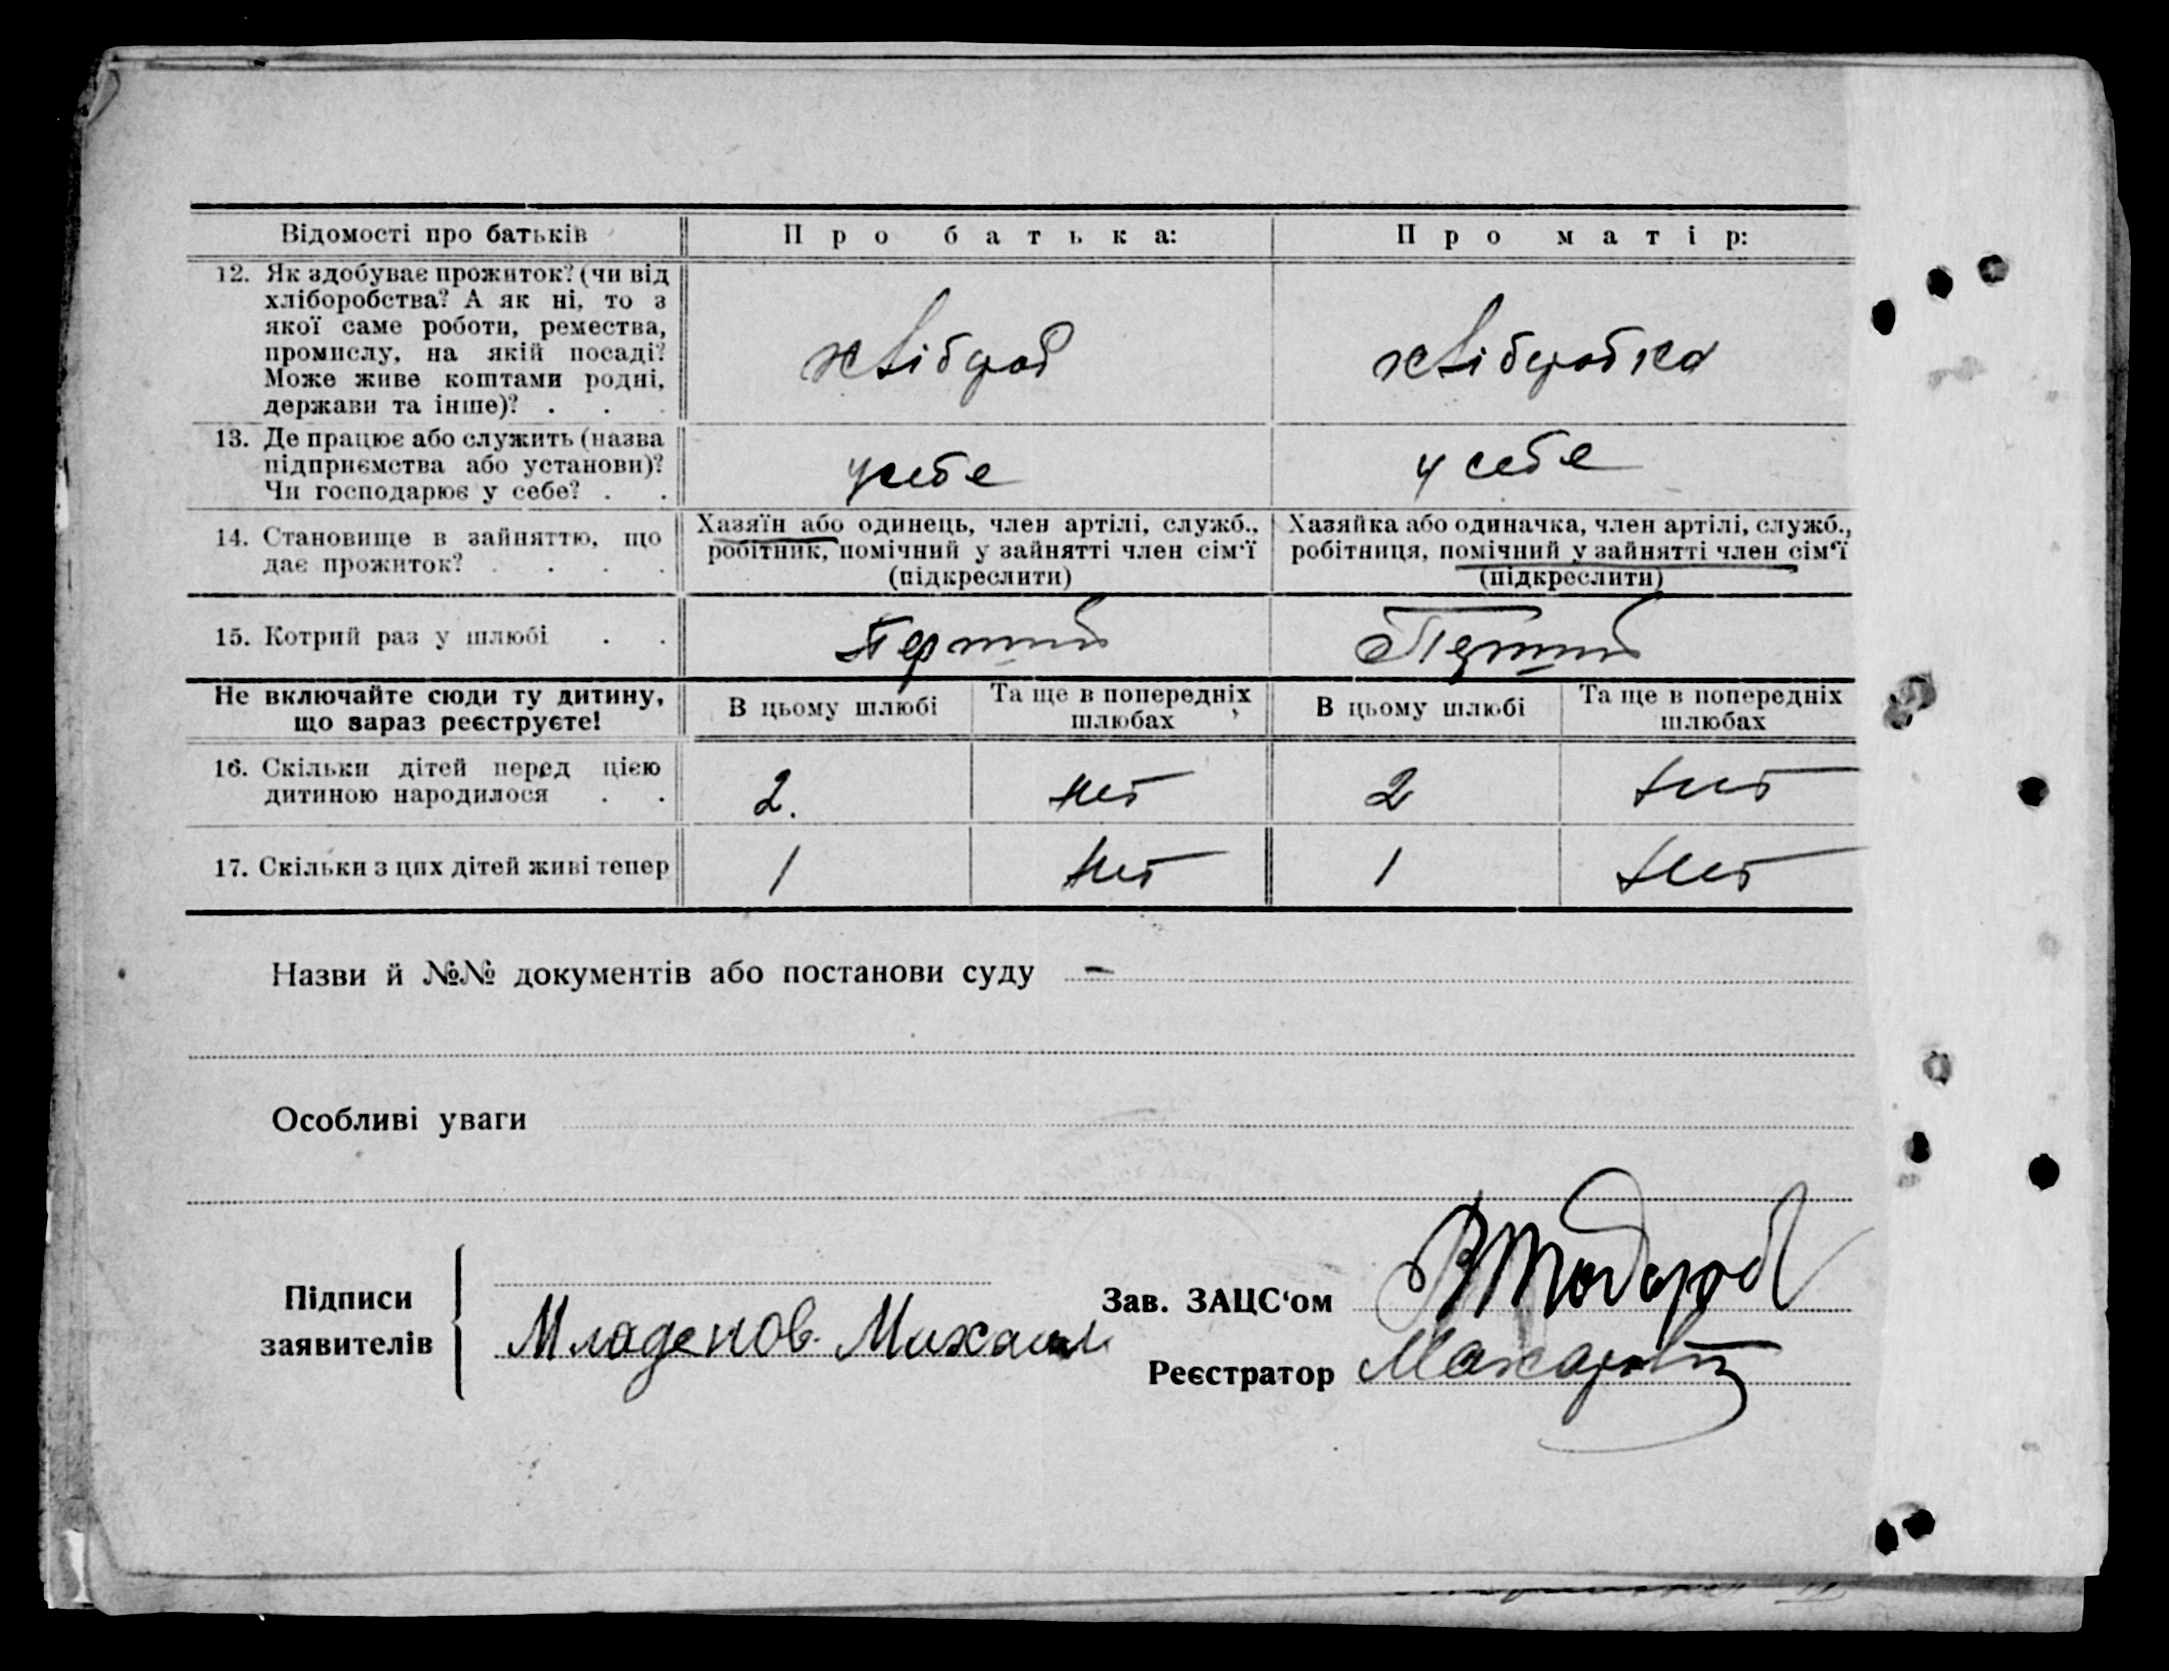 Відомості про батьків
Про батька:
Про матір:
12. Як здобуває прожиток? (чи від
хліборобства? А як ні, то з
якої саме роботи, ремества,
промислу, на якій посаді?
Може живе коштами родні,
держави та інше)? . .
хлібороб
хліборобка
13. Де працює або служить (назва
підприємства або установи)?
Чи господарює у себе? . .
у себе
у себе
14. Становище в зайняттю, що
дає прожиток? . . . .
Хазяїн або одинець, член артілі, служб.,
робітник, помічний у зайнятті член сім'ї
(підкреслити)
Хазяйка або одиначка, член артілі, служб.,
робітниця, помічний у зайнятті член сім'ї
(підкреслити)
15. Котрий раз у шлюбі . .
Перший
Перший
Не включайте сюди ту дитину,
що зараз реєструєте!
В цьому шлюбі
Та ще в попередніх
шлюбах
В цьому шлюбі
Та ще в попередніх
шлюбах
16. Скільки дітей перед цією
дитиною народилося . .
2.
нет
2
нет
17. Скільки з цих дітей живі тепер
1
нет
1
нет
Назви й №№ документів або постанови суду –
Особливі уваги
Підписи
заявителів
Младенов Михаил
Зав. ЗАЦС'ом
Реєстратор